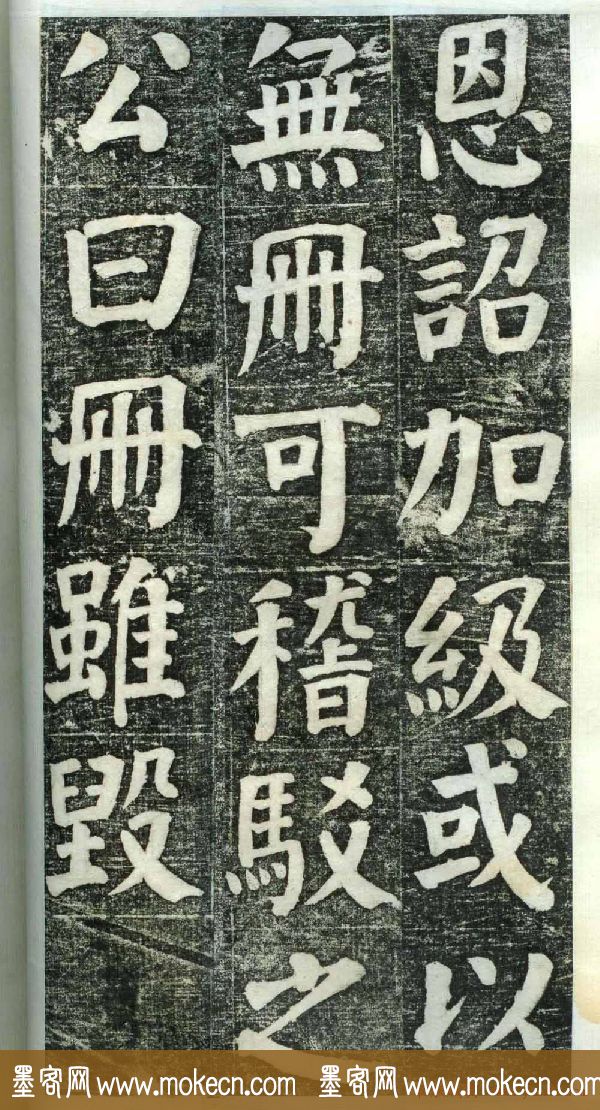 恩詔加級或以
無冊可稽駁之
公曰冊雖毀
墨客网 www.mokecn.com 墨客网 www.mokecn.com